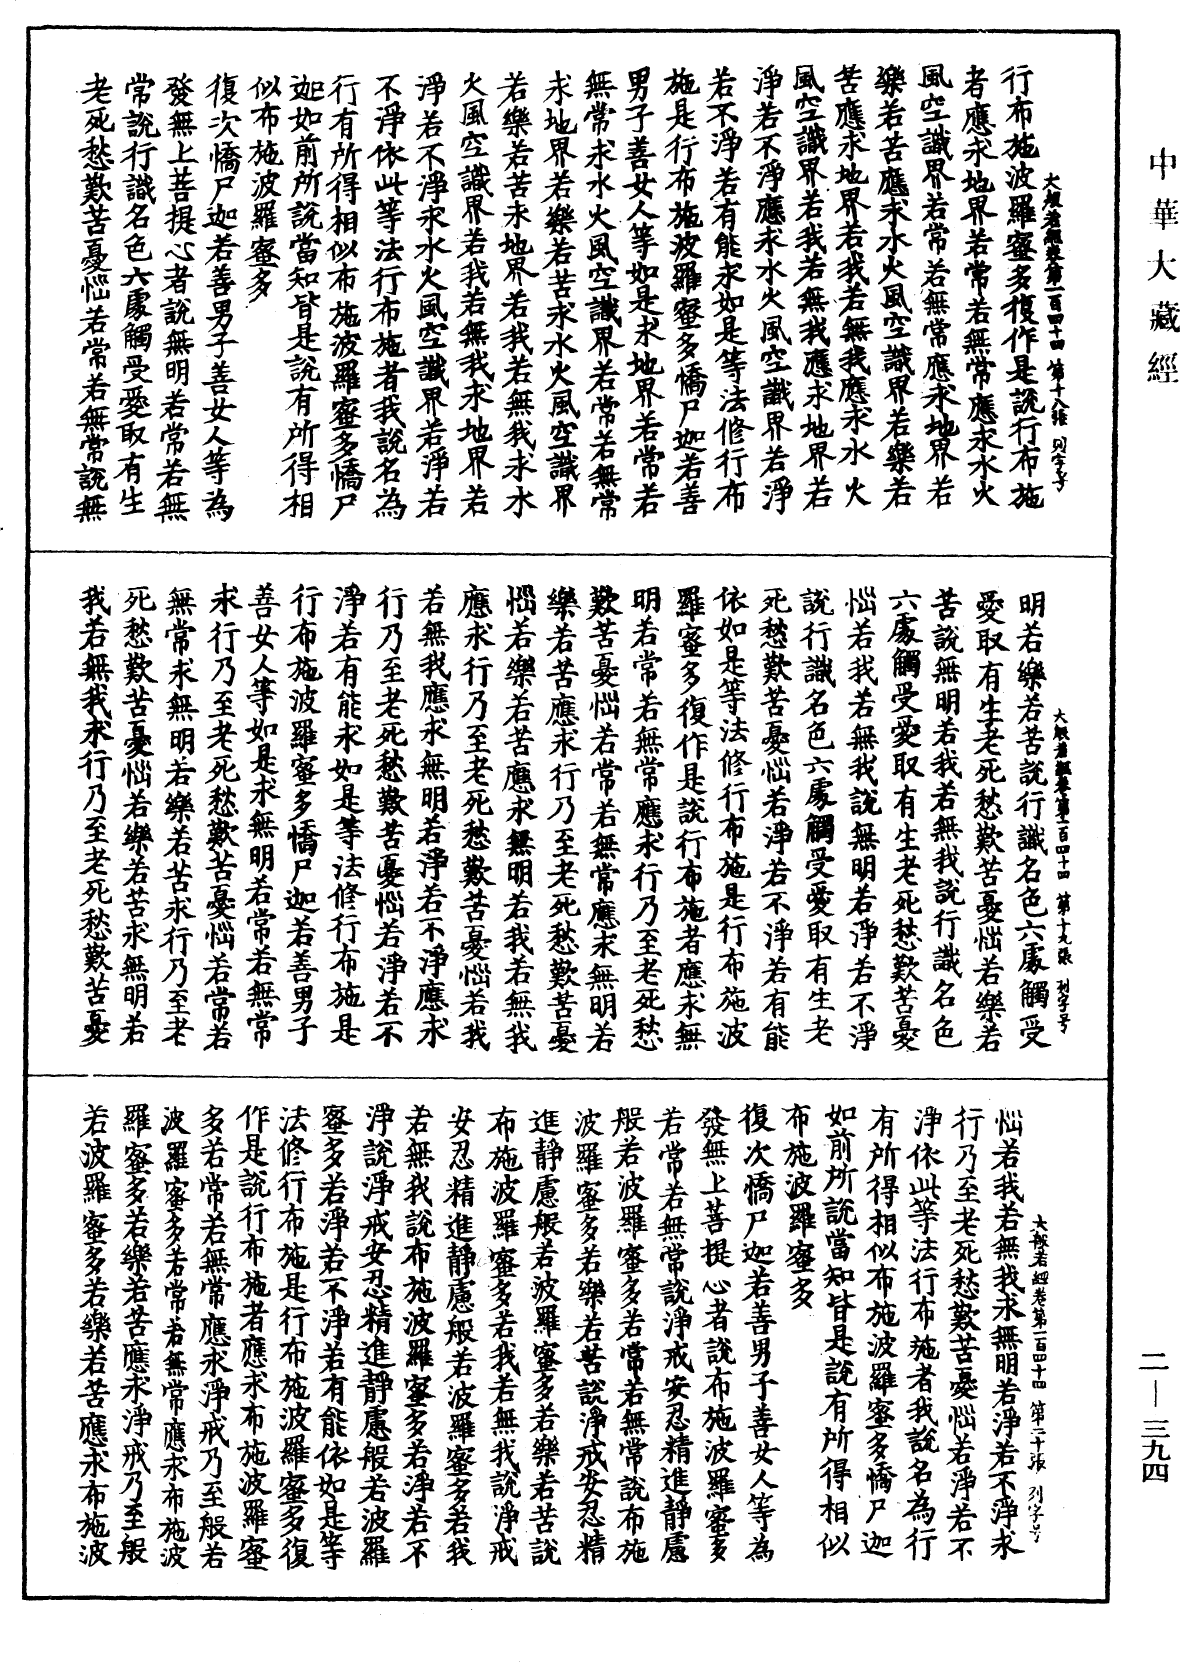 中華大藏經
大般若經卷第一百四十四 第十八張 列字号
行布施波羅蜜多復作是說行布施
者應求地界若常若無常應求水火
風空識界若常若無常應求地界若
樂若苦應求水火風空識界若樂若
苦應求地界若我若無我應求水火
風空識界若我若無我應求地界若
淨若不淨應求水火風空識界若淨
若不淨若有能求如是等法修行布
施是行布施波羅蜜多憍尸迦若善
男子善女人等如是求地界若常若
無常求水火風空識界若常若無常
求地界若樂若苦求水火風空識界
若樂若苦求地界若我若無我求水
火風空識界若我若無我求地界若
淨若不淨求水火風空識界若淨若
不淨依此等法行布施者我說名為
行有所得相似布施波羅蜜多憍尸
迦如前所說當知皆是說有所得相
似布施波羅蜜多
復次憍尸迦若善男子善女人等為
發無上菩提心者說無明若常若無
常說行識名色六處觸受愛取有生
老死愁歎苦憂惱若常若無常說無
大般若經卷第一百四十四 第十九張 列字号
明若樂若苦說行識名色六處觸受
愛取有生老死愁歎苦憂惱若樂若
苦說無明若我若無我說行識名色
六處觸受愛取有生老死愁歎苦憂
惱若我若無我說無明若淨若不淨
說行識名色六處觸受愛取有生老
死愁歎苦憂惱若淨若不淨若有能
依如是等法修行布施是行布施波
羅蜜多復作是說行布施者應求無
明若常若無常應求行乃至老死愁
歎苦憂惱若常若無常應求無明若
樂若苦應求行乃至老死愁歎苦憂
惱若樂若苦應求無明若我若無我
應求行乃至老死愁歎苦憂惱若我
若無我應求無明若淨若不淨應求
行乃至老死愁歎苦憂惱若淨若不
淨若有能求如是等法修行布施是
行布施波羅蜜多憍尸迦若善男子
善女人等如是求無明若常若無常
求行乃至老死愁歎苦憂惱若常若
無常求無明若樂若苦求行乃至老
死愁歎苦憂惱若樂若苦求無明若
我若無我求行乃至老死愁歎苦憂
大般若經卷第一百四十四 第二十張 列字号
惱若我若無我求無明若淨若不淨求
行乃至老死愁歎苦憂惱若淨若不
淨依此等法行布施者我說名為行
有所得相似布施波羅蜜多憍尸迦
如前所說當知皆是說有所得相似
布施波羅蜜多
復次憍尸迦若善男子善女人等為
發無上菩提心者說布施波羅蜜多
若常若無常說淨戒安忍精進靜慮
般若波羅蜜多若常若無常說布施
波羅蜜多若樂若苦說淨戒安忍精
進靜慮般若波羅蜜多若樂若苦說
布施波羅蜜多若我若無我說淨戒
安忍精進靜慮般若波羅蜜多若我
若無我說布施波羅蜜多若淨若不
淨說淨戒安忍精進靜慮般若波羅
蜜多若淨若不淨若有能依如是等
法修行布施是行布施波羅蜜多復
作是說行布施者應求布施波羅蜜
多若常若無常應求淨戒乃至般若
波羅蜜多若常若無常應求布施波
羅蜜多若樂若苦應求淨戒乃至般
若波羅蜜多若樂若苦應求布施波
二—三九四